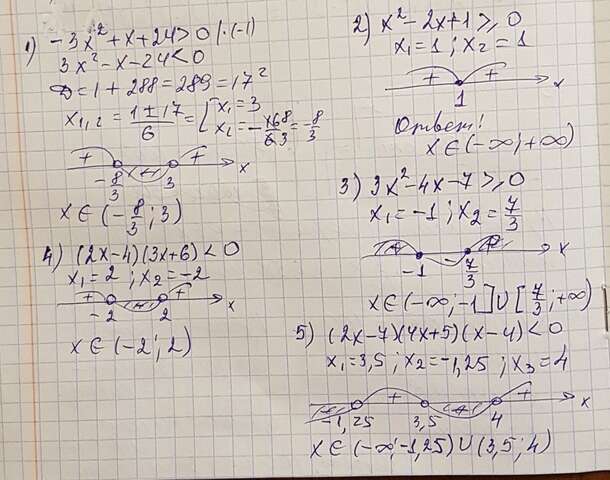 1) -3x²+x+24>0 |·(-1)
3x²-x-24<0
D=1+288=289=17²
x₁,₂=(1±17)/6=[x₁=3
x₂=-16/6=-8/3
+ + x
-8/3 3
x∈(-8/3;3)
4) (2x-4)(3x+6)<0
x₁=2; x₂=-2
+ - + x
-2 2
x∈(-2;2)
2) x²-2x+1≥0
x₁=1; x₂=1
+ + x
1
Ответ!
x∈(-∞;+∞)
3) 3x²-4x-7≥0
x₁=-1; x₂=7/3
+ - + x
-1 7/3
x∈(-∞;-1]∪[7/3;+∞)
5) (2x-7)(4x+5)(x-4)<0
x₁=3,5; x₂=-1,25; x₃=4
+ + x
-1,25 3,5 4
x∈(-∞;-1,25)∪(3,5;4)